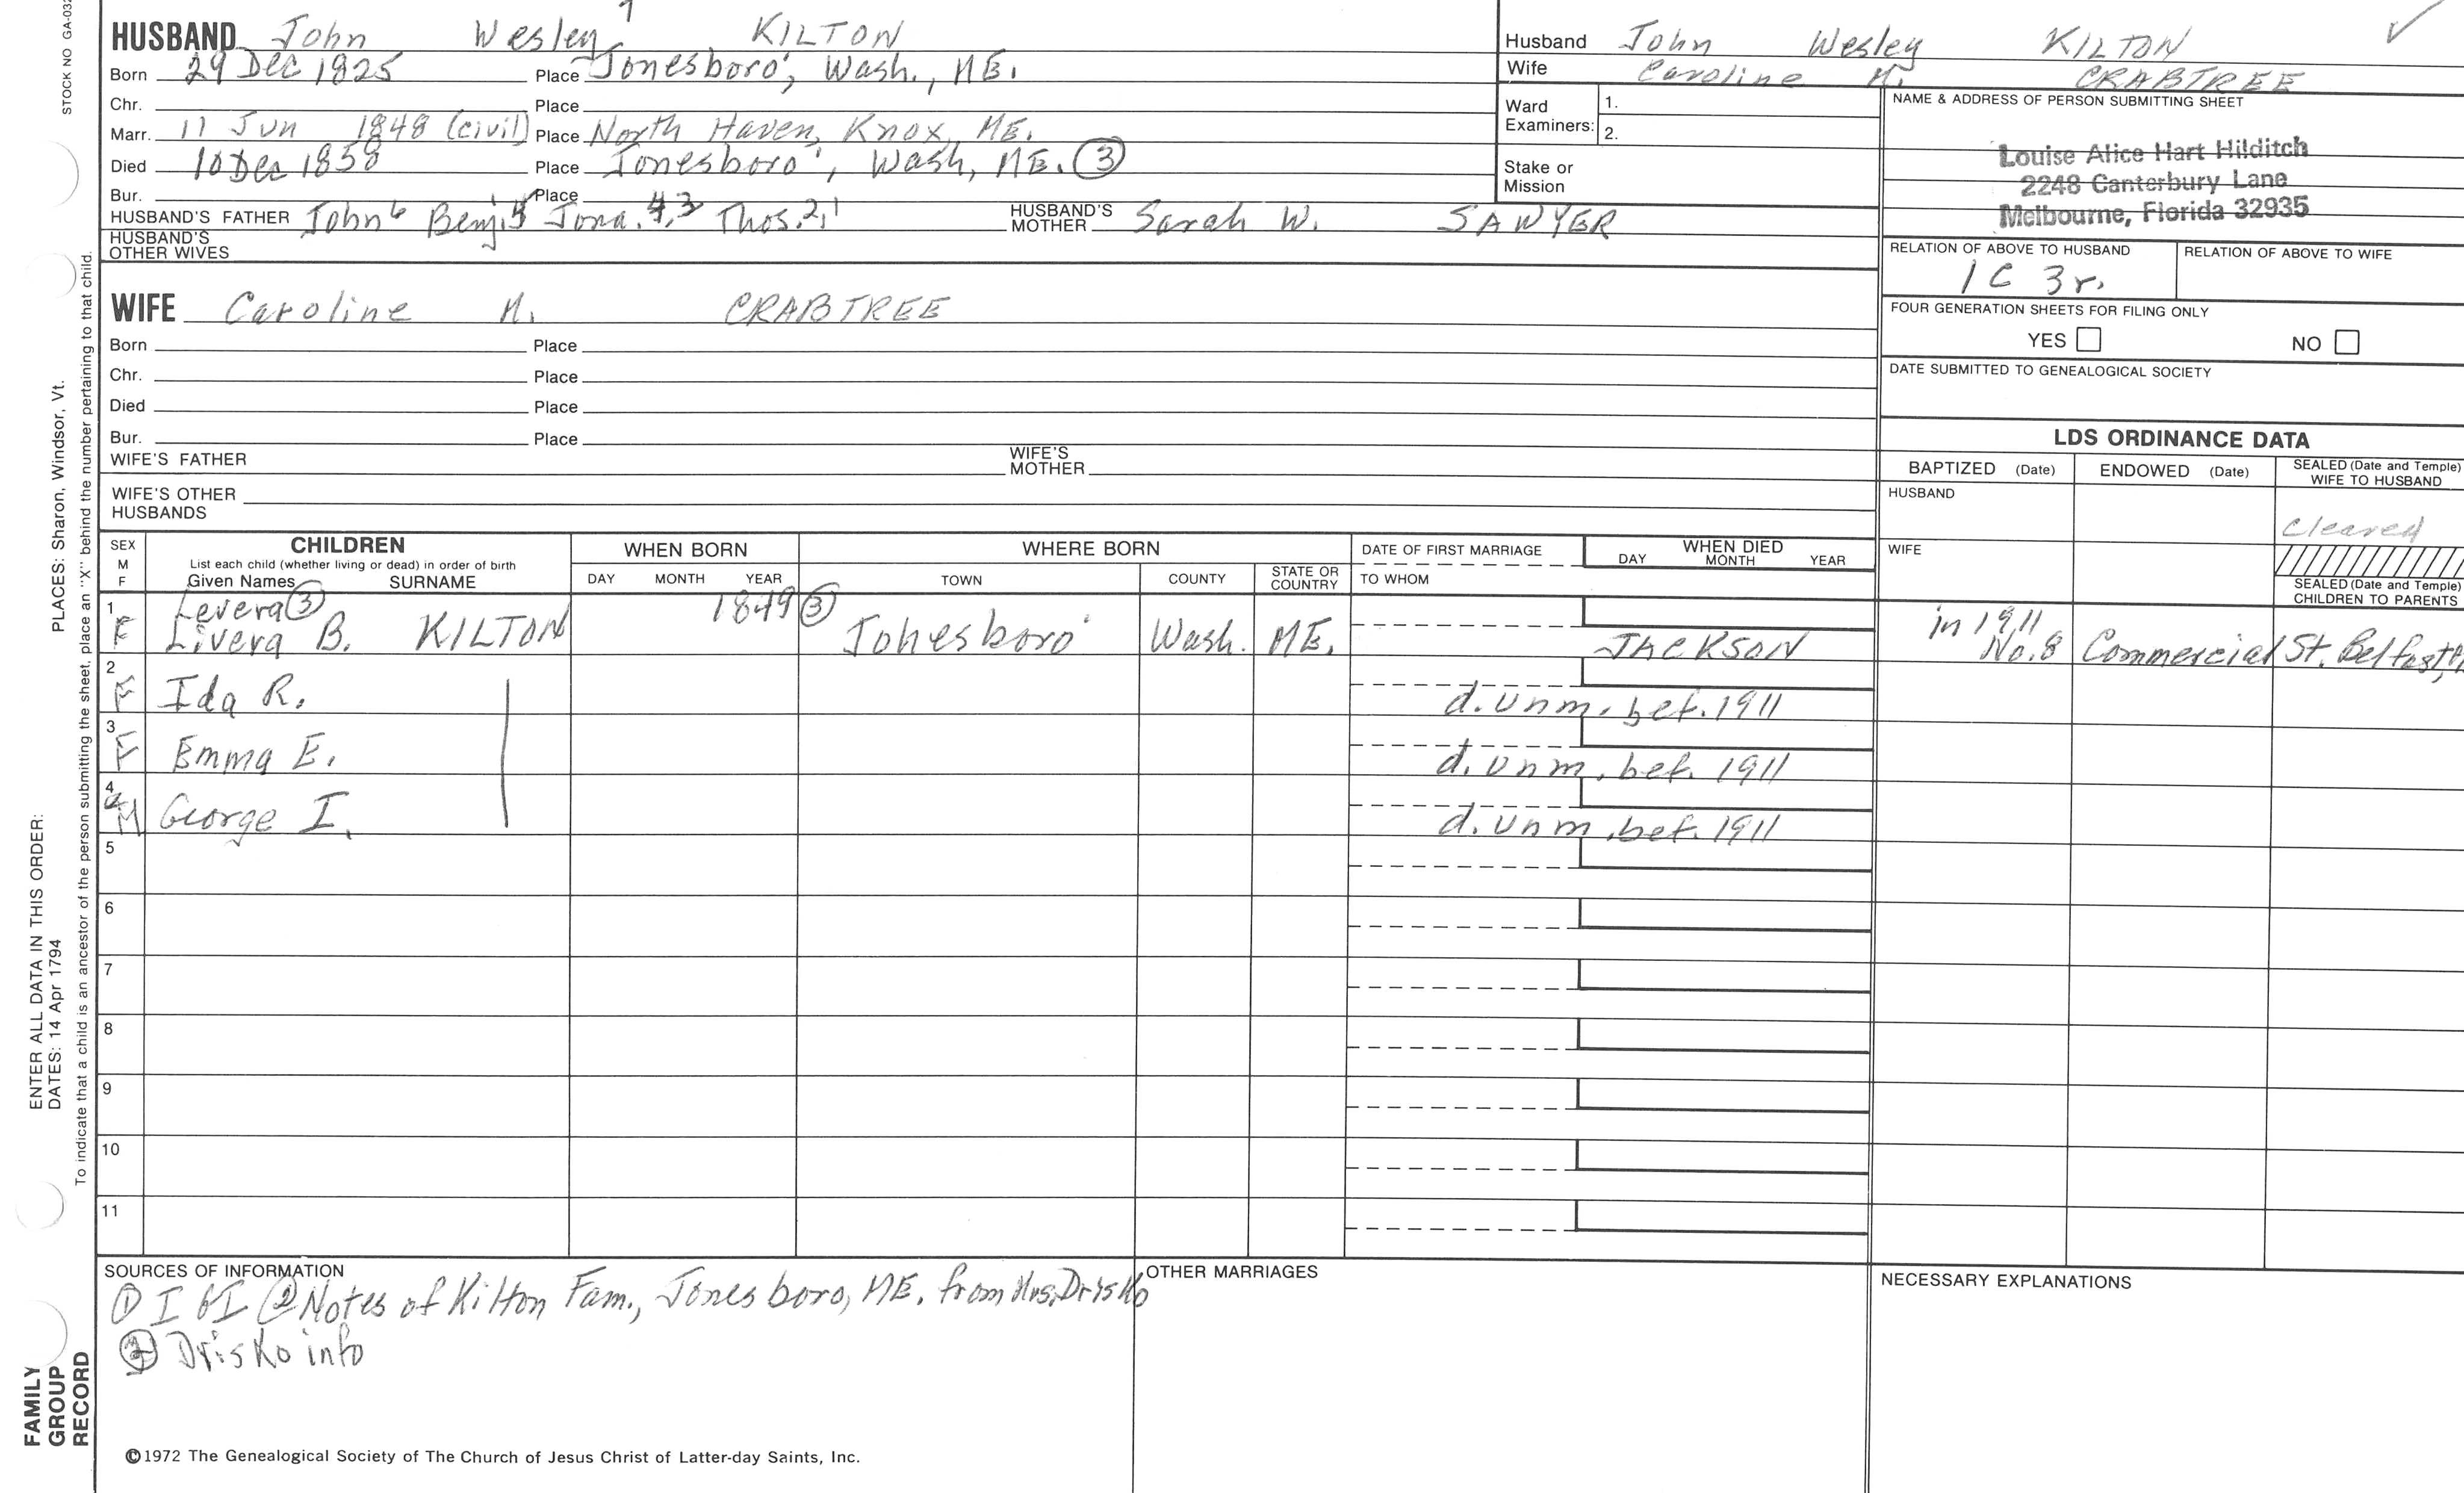 STOCK NO GA-032
HUSBAND John Wesley 7 KILTON
Born 29 Dec 1825 Place Jonesboro', Wash., ME.
Chr. Place
Marr. 11 Jun 1848 (civil) Place North Haven, Knox, ME.
Died 10 Dec 1858 Place Jonesboro', Wash, ME. ③
Bur. Place
HUSBAND'S FATHER John 6 Benj. 5 Jona. 4,3 Thos. 2,1 HUSBAND'S MOTHER Sarah W. SAWYER
HUSBAND'S OTHER WIVES
WIFE Caroline M. CRABTREE
Born Place
Chr. Place
Died Place
Bur. Place
WIFE'S FATHER WIFE'S MOTHER
WIFE'S OTHER HUSBANDS
Husband John Wesley KILTON ✓
Wife Caroline M. CRABTREE
Ward Examiners: 1.
2.
Stake or Mission
NAME & ADDRESS OF PERSON SUBMITTING SHEET
Louise Alice Hart Hilditch
2248 Canterbury Lane
Melbourne, Florida 32935
RELATION OF ABOVE TO HUSBAND RELATION OF ABOVE TO WIFE
1C 3r.
FOUR GENERATION SHEETS FOR FILING ONLY
YES NO
DATE SUBMITTED TO GENEALOGICAL SOCIETY
LDS ORDINANCE DATA
BAPTIZED (Date) ENDOWED (Date) SEALED (Date and Temple) WIFE TO HUSBAND
HUSBAND Cleared
WIFE
SEALED (Date and Temple) CHILDREN TO PARENTS
SEX M F CHILDREN WHEN BORN WHERE BORN DATE OF FIRST MARRIAGE WHEN DIED
List each child (whether living or dead) in order of birth
Given Names SURNAME DAY MONTH YEAR TOWN COUNTY STATE OR COUNTRY TO WHOM DAY MONTH YEAR
1 Levera ③ 1849 ③ in 1911
F Livera B. KILTON Jonesboro' Wash. ME. JACKSON No. 8 Commercial St. Belfast,
2 F Ida R. d. unm. bef. 1911
3 F Emma E. d. unm. bef. 1911
4 M George I. d. unm. bef. 1911
5
6
7
8
9
10
11
SOURCES OF INFORMATION OTHER MARRIAGES NECESSARY EXPLANATIONS
① I GI ② Notes of Kilton Fam., Jonesboro, ME. from Mrs. Drisko
③ Drisko info
©1972 The Genealogical Society of The Church of Jesus Christ of Latter-day Saints, Inc.
PLACES: Sharon, Windsor, Vt.
ENTER ALL DATA IN THIS ORDER:
DATES: 14 Apr 1794
To indicate that a child is an ancestor of the person submitting the sheet, place an "X" behind the number pertaining to that child.
FAMILY
GROUP
RECORD